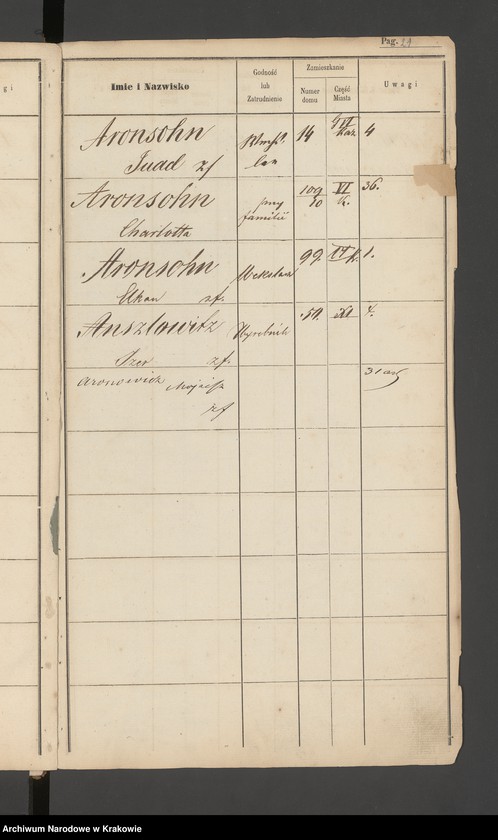 Pag. 29
Imie i Nazwisko
Godność
lub
Zatrudnienie
Zamieszkanie
Numer
domu
Część
Miasta
Uwagi
gi
Aronsohn
Judd zf
14
Kaz
4
Aronsohn
Charlotta
przy
familii
109
10
VI
K.
36.
Aronsohn
Elkan zf.
99
VI K.
1.
Anszlowitz
zf.
Wyrobnik
59.
XI
4.
Aronowicz Mojżesz
zf
Archiwum Narodowe w Krakowie